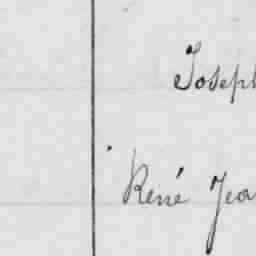 Joseph
René Jea